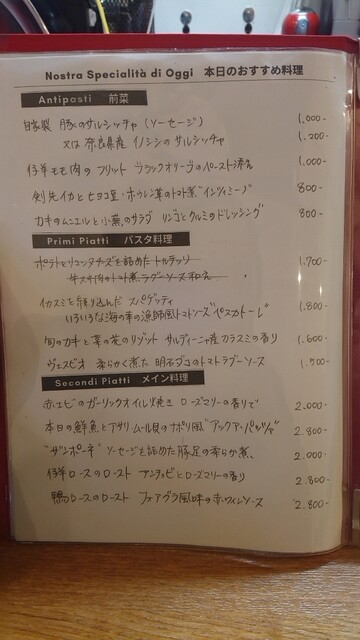 Nostra Specialità di Oggi 本日のおすすめ料理
Antipasti 前菜
自家製 豚のサルシッチャ (ソーセージ) 1,000-
又は 奈良県産 イノシシのサルシッチャ 1,200-
仔羊モモ肉のフリット ブラックオリーヴのペースト添え 1,000-
剣先イカとヒヨコ豆・ホウレン草のトマト煮"インツィミーノ" 800-
カキのムニエルと小蕪のサラダ リンゴとクルミのドレッシング 800-
Primi Piatti パスタ料理
ポテトとリコッタチーズを詰めたトルテッリ 1,700-
牛スネ肉のトマト煮ラグーソース和え
イカスミを練り込んだ スパゲッティ
いろいろな海の幸の漁師風トマトソース"ペスカトーレ" 1,800-
旬のカキと菜の花のリゾット サルディーニャ産カラスミの香り 1,600-
ヴェスビオ 柔らかく煮た 明石ダコのトマトラグーソース 1,500-
Secondi Piatti メイン料理
赤エビのガーリックオイル焼き ローズマリーの香りで 2,000-
本日の鮮魚とアサリ・ムール貝のナポリ風"アックア・パッツァ" 2,800-
"ザンポーネ" ソーセージを詰めた豚足の柔らか煮、 2,000-
仔羊ロースのロースト アンチョビとローズマリーの香り 2,800-
鴨ロースのロースト フォアグラ風味の赤ワインソース 2,800-